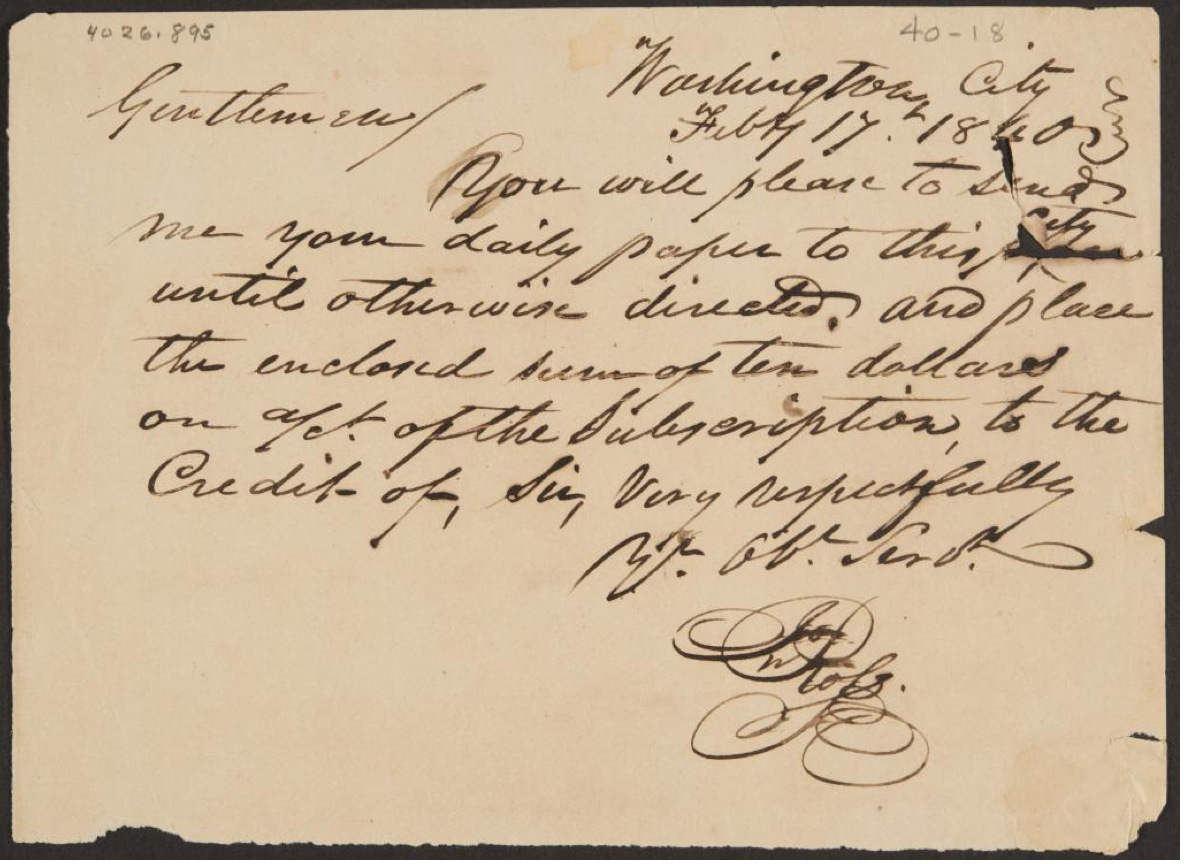 4026.895
40-18
Washington City
Feby 17th 1840
Gentlemen/
You will please to send
me your daily paper to this
City
until otherwise directed, and place
the enclosed sum of ten dollars
on a/ct. of the Subscription, to the
Credit of, Sir, Very respectfully
Yr. Obt. Servt.
Jno Ross.